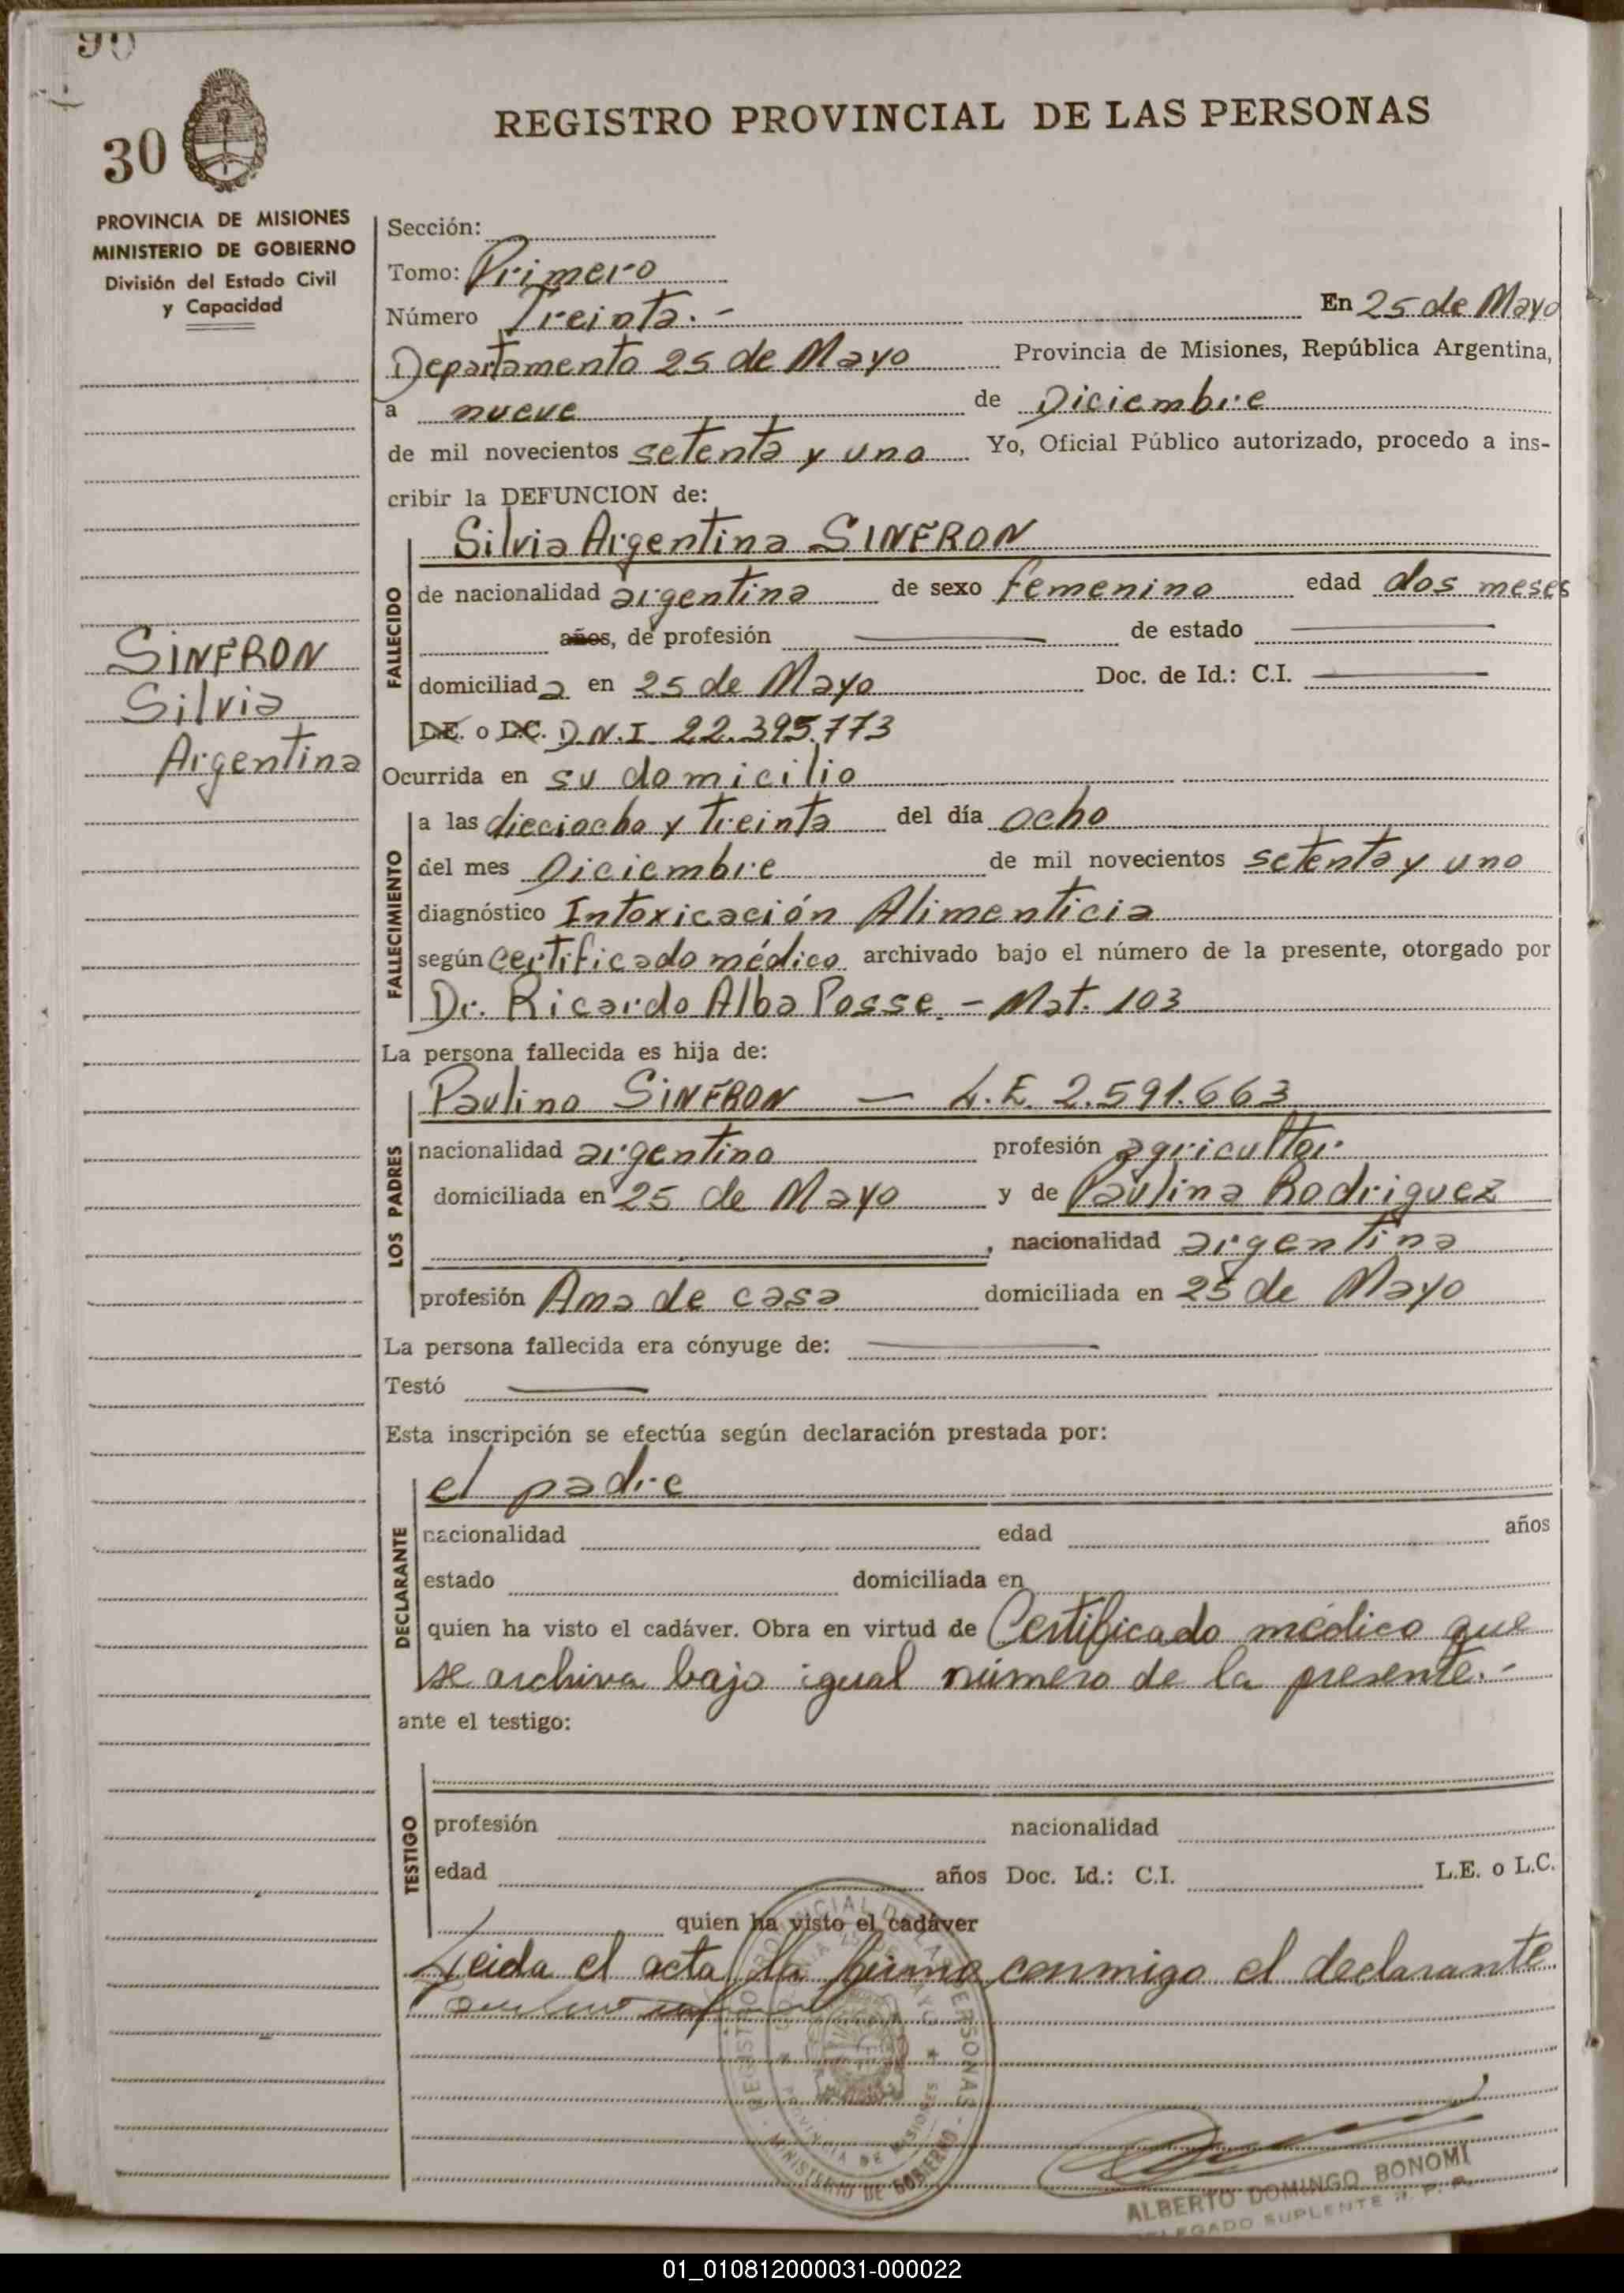 90
30
REGISTRO PROVINCIAL DE LAS PERSONAS
PROVINCIA DE MISIONES
MINISTERIO DE GOBIERNO
División del Estado Civil
y Capacidad
SINFRON
Silvia
Argentina
Sección:
Tomo: Primero
Número Treinta.- En 25 de Mayo
Departamento 25 de Mayo Provincia de Misiones, República Argentina,
a nueve de Diciembre
de mil novecientos setenta y uno Yo, Oficial Público autorizado, procedo a ins-
cribir la DEFUNCION de:
FALLECIDO
Silvia Argentina SINFRON
de nacionalidad argentina de sexo femenino edad dos meses
años, de profesión de estado
domiciliada en 25 de Mayo Doc. de Id.: C.I.
L.E. o L.C. D.N.I 22.395.773
Ocurrida en su domicilio
FALLECIMIENTO
a las dieciocho y treinta del día ocho
del mes Diciembre de mil novecientos setenta y uno
diagnóstico Intoxicación Alimenticia
según certificado médico archivado bajo el número de la presente, otorgado por
Dr. Ricardo Alba Posse.- Mat. 103
La persona fallecida es hija de:
LOS PADRES
Paulino SINFRON — L.E. 2.591.663
nacionalidad argentino profesión agricultor
domiciliada en 25 de Mayo y de Paulina Rodriguez
, nacionalidad argentina
profesión Ama de casa domiciliada en 25 de Mayo
La persona fallecida era cónyuge de:
Testó
Esta inscripción se efectúa según declaración prestada por:
DECLARANTE
el padre
nacionalidad edad años
estado domiciliada en
quien ha visto el cadáver. Obra en virtud de Certificado médico que
se archiva bajo igual número de la presente.-
ante el testigo:
TESTIGO
profesión nacionalidad
edad años Doc. Id.: C.I. L.E. o L.C.
quien ha visto el cadáver
Leida el acta la firma conmigo el declarante
REGISTRO PROVINCIAL DE LAS PERSONAS
PROVINCIA DE MISIONES
MINISTERIO DE GOBIERNO
ALBERTO DOMINGO BONOMI
DELEGADO SUPLENTE R. P. P.
01_010812000031-000022